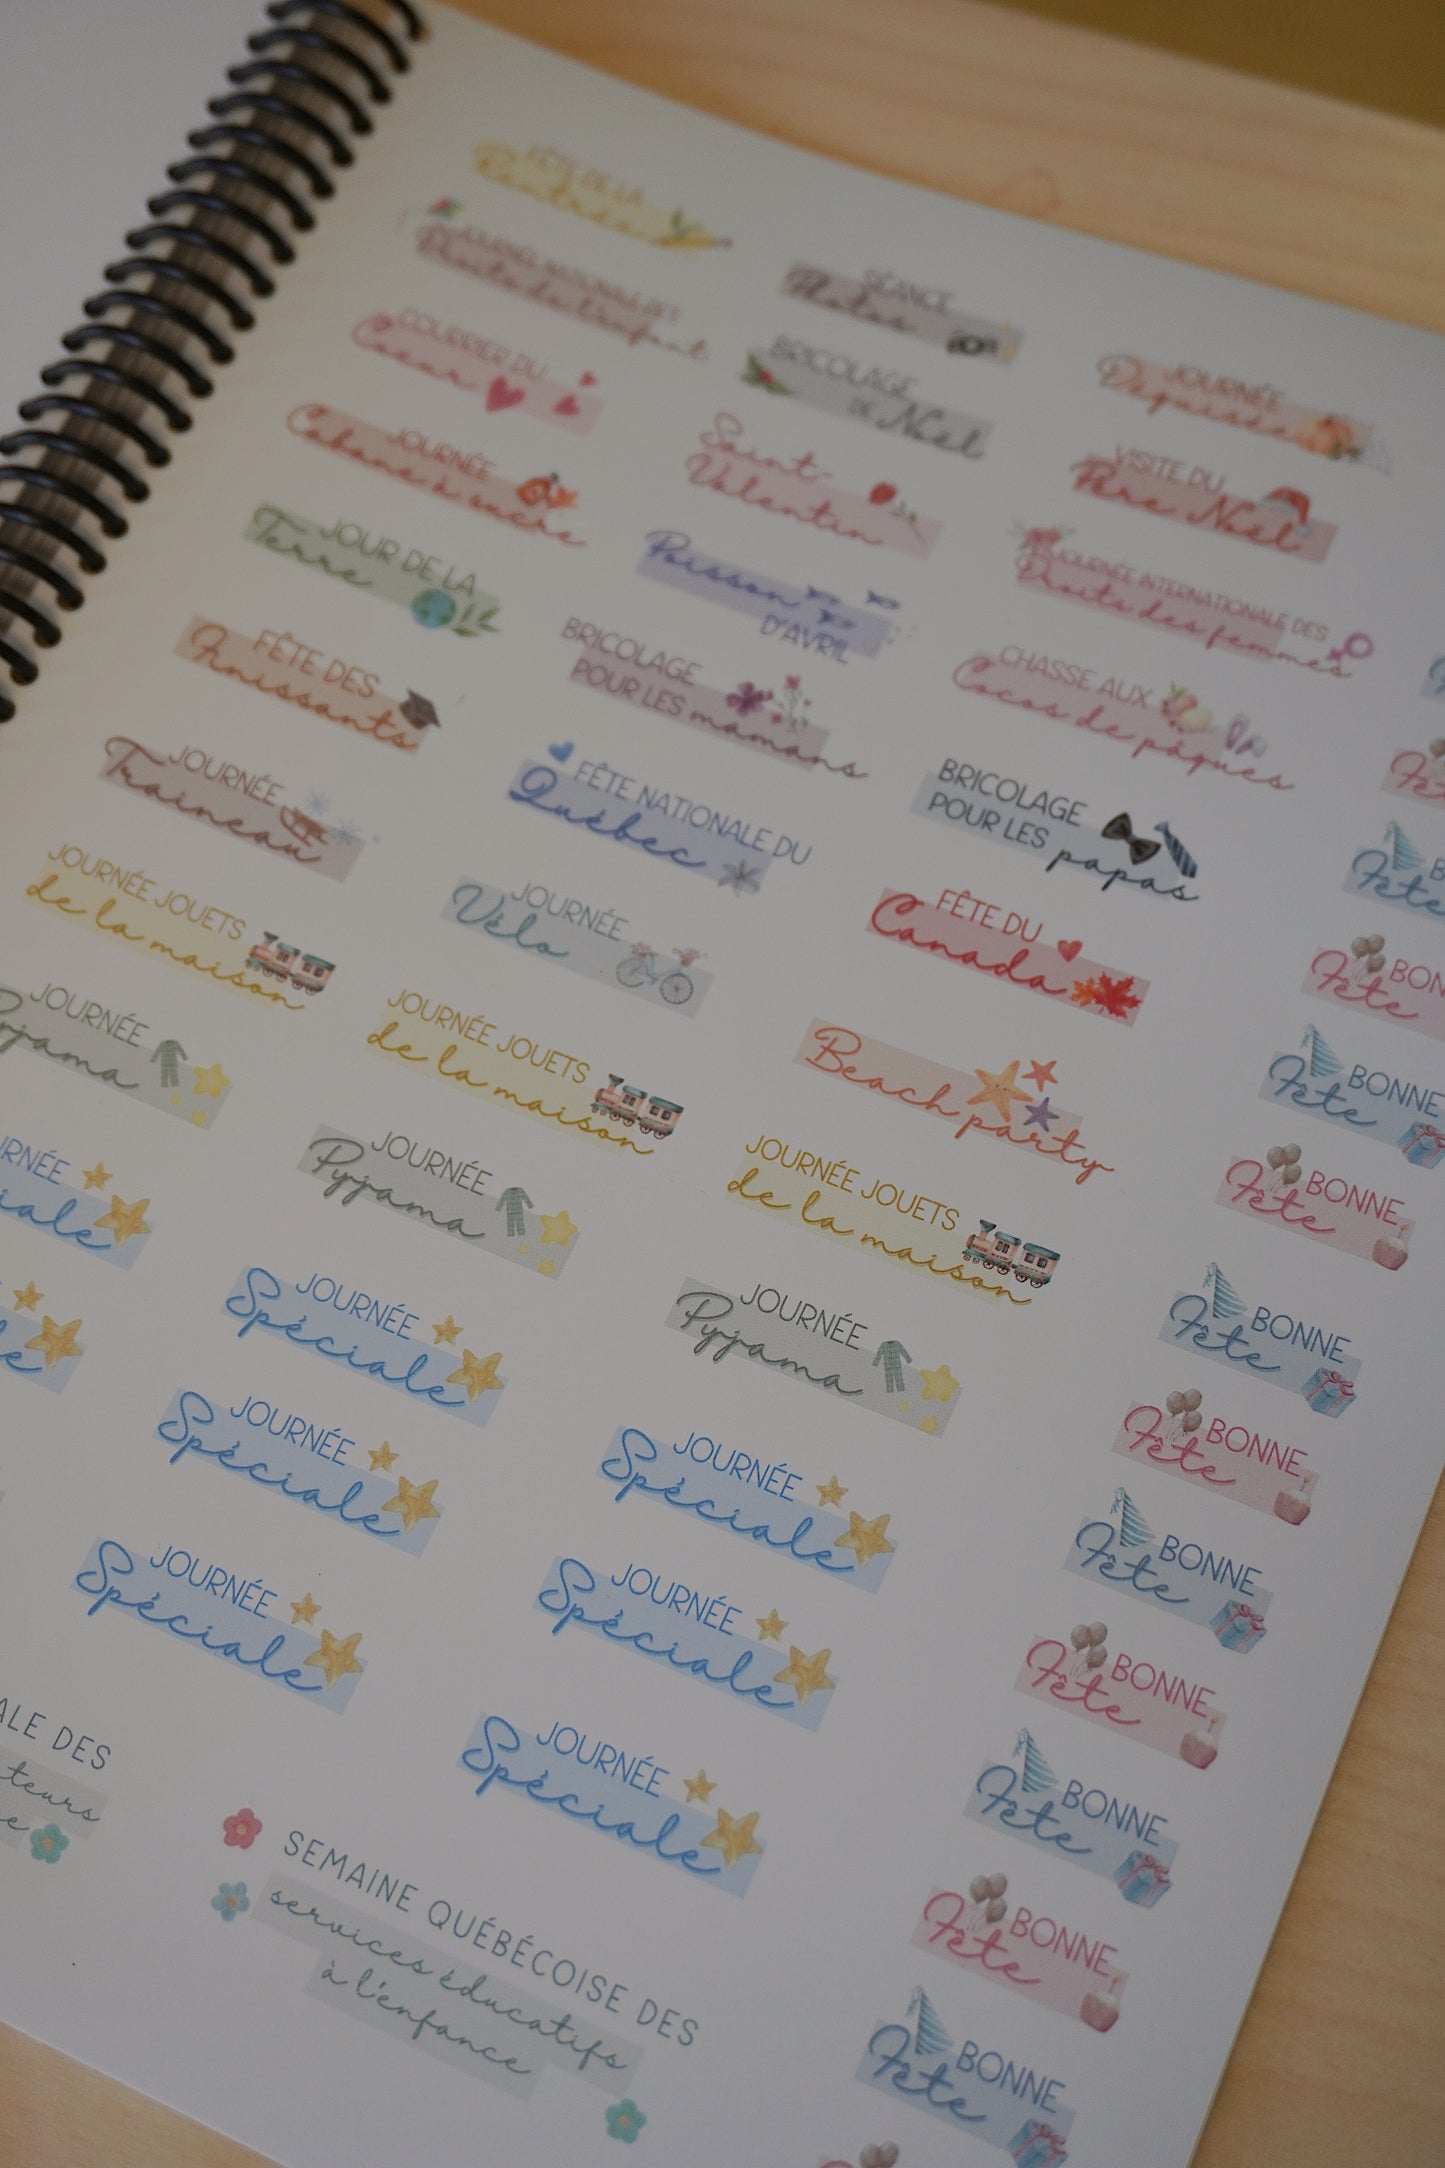 FÊTE DE LA
Rentrée
SÉANCE
Photos
JOURNÉE
Déguisée
JOURNÉE NATIONALE DES
Droits de l'enfant
BRICOLAGE
DE Noël
VISITE DU
Père Noël
COURRIER DU
Coeur
Saint-
Valentin
JOURNÉE INTERNATIONALE DES
Droits des femmes
JOURNÉE
Cabane à sucre
Poisson
D'AVRIL
CHASSE AUX
Cocos de pâques
JOUR DE LA
Terre
BRICOLAGE
POUR LES mamans
BRICOLAGE
POUR LES papas
FÊTE DES
Finissants
FÊTE NATIONALE DU
Québec
FÊTE DU
Canada
JOURNÉE
Traîneau
JOURNÉE
Vélo
Beach party
JOURNÉE JOUETS
de la maison
JOURNÉE JOUETS
de la maison
JOURNÉE JOUETS
de la maison
JOURNÉE
Pyjama
JOURNÉE
Pyjama
JOURNÉE
Pyjama
RNÉE
ciale
JOURNÉE
Spéciale
JOURNÉE
Spéciale
le
JOURNÉE
Spéciale
JOURNÉE
Spéciale
JOURNÉE
Spéciale
JOURNÉE
Spéciale
ALE DES
teurs
e
SEMAINE QUÉBÉCOISE DES
services éducatifs
à l'enfance
Fête
B
Fête
BON
Fête
BONNE
Fête
BONNE
Fête
BONNE
Fête
BONNE
Fête
BONNE
Fête
BONNE
Fête
BONNE
Fête
BONNE
Fête
BONNE
Fête